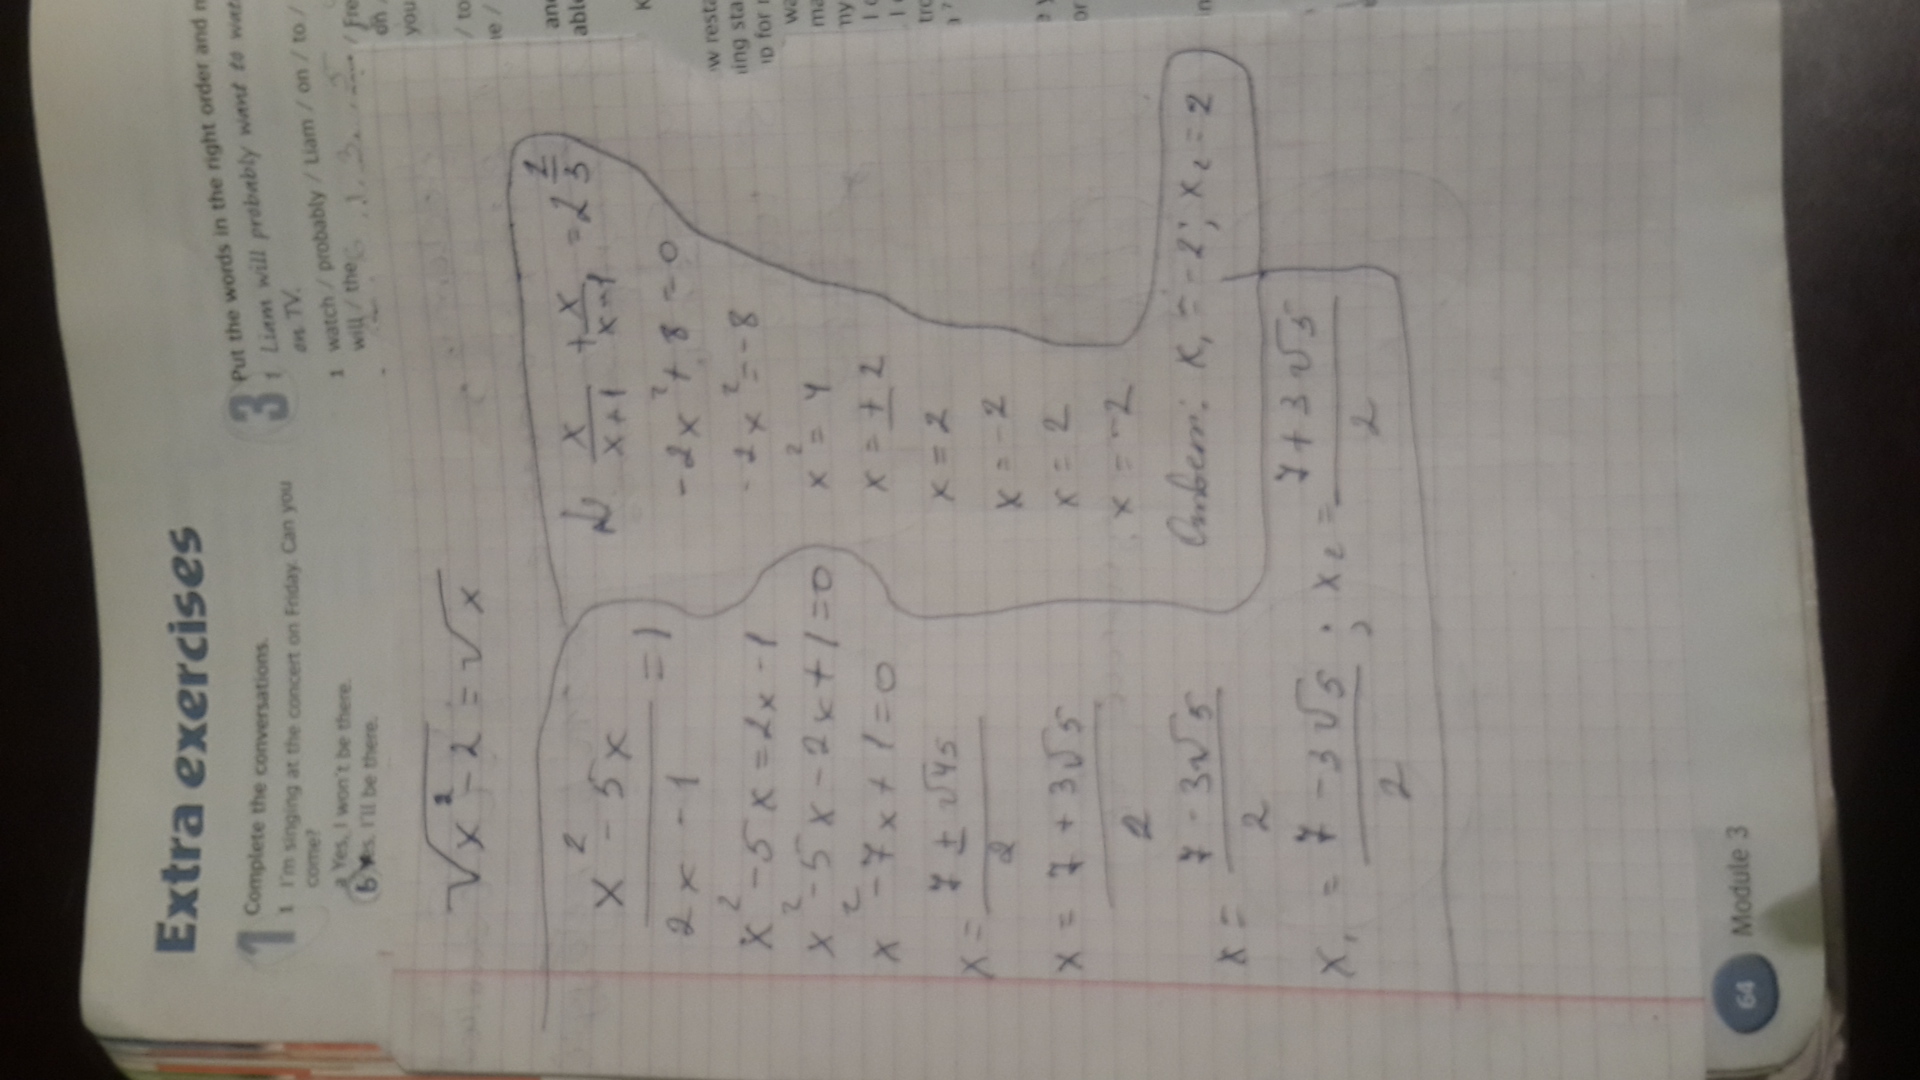 Extra exercises
1 Complete the conversations.
1 I'm singing at the concert on Friday. Can you
come?
a Yes, I won't be there.
b Yes, I'll be there.
3 Put the words in the right order and
1 Liam will probably want to
on TV.
1 watch / probably / Liam / on / to /
will / the
√x² - 2 = √x
x² - 5x / 2x - 1 = 1
x² - 5x = 2x - 1
x² - 5x - 2x + 1 = 0
x² - 7x + 1 = 0
x = 7 ± √45 / 2
x = 7 + 3√5 / 2
x = 7 - 3√5 / 2
x₁ = 7 - 3√5 / 2 ; x₂ = 7 + 3√5 / 2
x / x+1 + x / x-1 = 2 2/3
-2x² + 8 = 0
-2x² = -8
x² = 4
x = ± 2
x = 2
x = -2
x = 2
x = -2
Ответ: x₁ = -2; x₂ = 2
64 Module 3